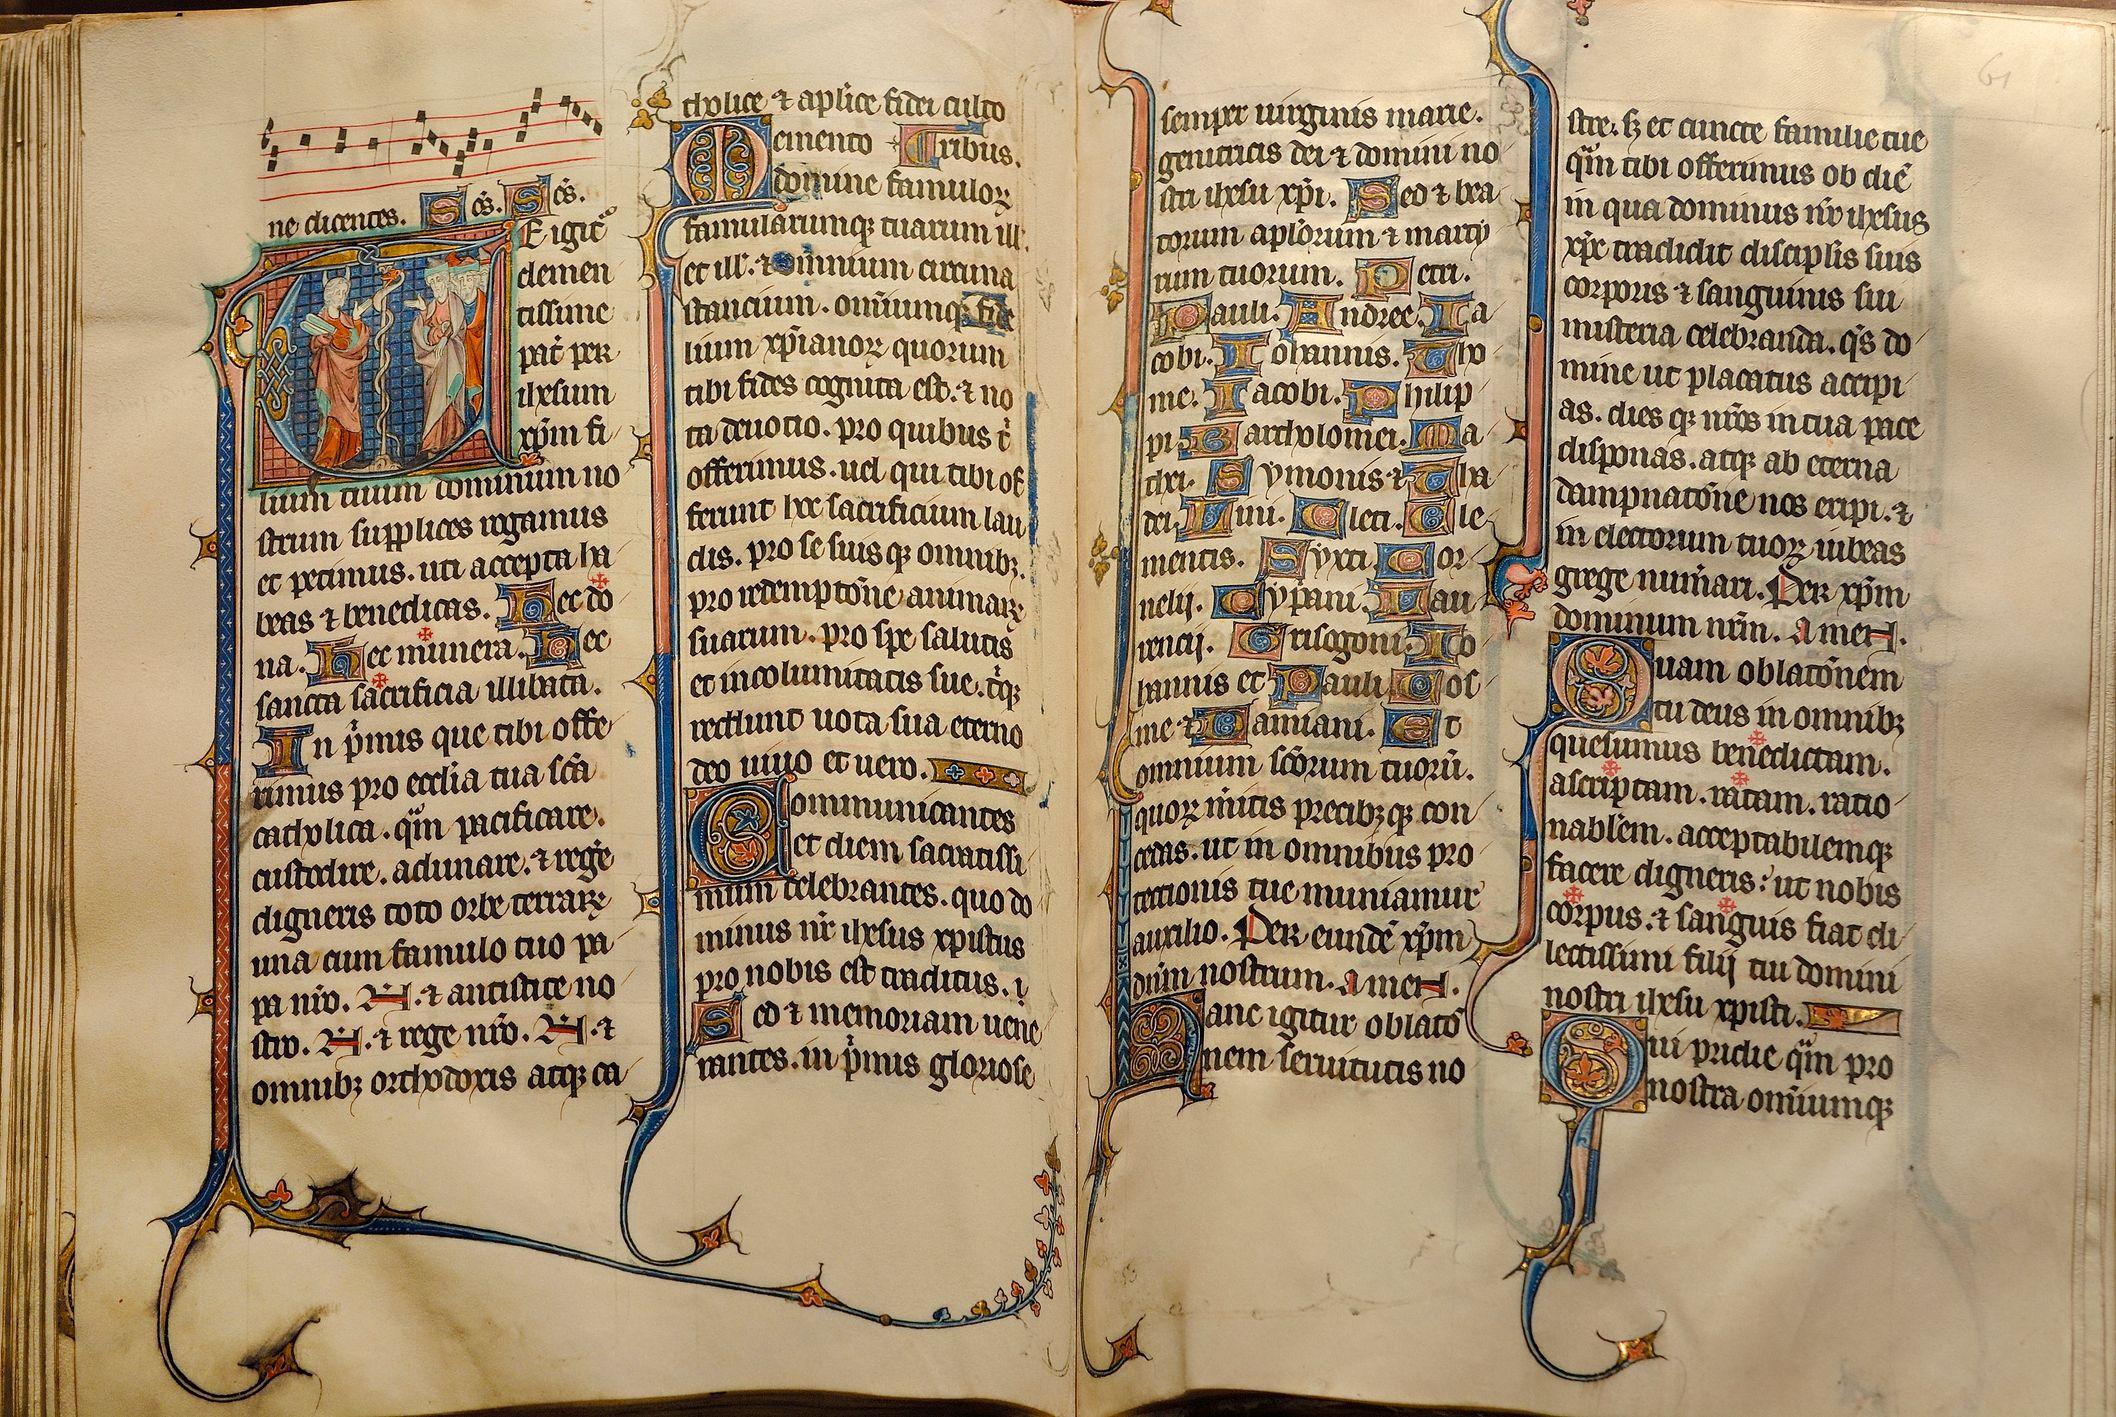 ne dicentes. Scs̄. Scs̄.
Te igit̄
clemen
tissime
pat̄ per
ihesum
xp̄m fi
lium tuum dominum no
strum supplices rogamus
et petimus. uti accepta ha
beas ⁊ benedicas. Hec ✠ do
na. Hec ✠ munera. Hec
sancta ✠ sacrificia illibata.
In p̄mis que tibi offe
rimus pro ecclīa tua scā
catholica. qm̄ pacificare.
custodire. adunare. ⁊ rege
digneris toto orbe terrarꝝ
una cum famulo tuo pa
pa nr̄o. N. ⁊ antistite no
stro. N. ⁊ rege nr̄o. N. ⁊
omnibꝫ orthodoxis atqꝫ ca
tholice ⁊ aplīce fidei culto
Memento ✠ Cribus.
domine famuloꝝ
famularumqꝫ tuarum ill̄.
et ill̄. ⁊ om̄nium circum a
stancium. om̄iumqꝫ fide
lium xp̄ianoꝝ quorum
tibi fides cognita est. ⁊ no
ta deuotio. pro quibus t̄
offerimus. uel qui tibi of
ferunt hoc sacrificium lau
dis. pro se suisqꝫ omnibꝫ.
pro redemptōne animarꝝ
suarum. pro spe salutis
et incolumitatis sue. t̄qꝫ
reddunt uota sua eterno
deo uiuo et uero.
Communicantes
et diem sacratissi
mum celebrantes. quo do
minus nr̄ ihesus xpistus
pro nobis est traditus. ı
Sed ⁊ memoriam uene
rantes. in p̄mis gloriose
semper uirginis marie.
genitricis dei ⁊ domini no
stri ihesu xp̄i. Sed ⁊ bea
torum aplōrum ⁊ marty
rum tuorum. Petri.
Pauli. Andree. Ia
cobi. Iohannis. Tho
me. Iacobi. Philip
pi. Bartholomei. Ma
thei. Symonis ⁊ Tha
dei. Lini. Cleti. Cle
mentis. Syxti. Cor
nelij. Cyp̄ani. Lau
rencij. Grisogoni. Io
hannis et Pauli. Cos
me ⁊ Damiani. Et
omnium scōrum tuorū.
quoꝝ m̄itis precibꝫqꝫ con
cedas. ut in omnibus pro
tectionis tue muniamur
auxilio. Per eundē xp̄m
dn̄m nostrum. Amen.
Hanc igitur oblatō
nem seruitutis no
stre. sꝫ et cuncte familie tue
qm̄ tibi offerimus ob diē
in qua dominus nr̄ ihesus
xp̄c tradidit discipl̄is suis
corporis ⁊ sanguinis sui
misteria celebranda. qs̄ do
mine ut placatus accipi
as. dies qꝫ nr̄os in tua pace
disponas. atqꝫ ab eterna
dampnatōne nos eripi. ⁊
in electorum tuoꝝ iubeas
grege num̄ari. Per xp̄m
dominum nrm̄. Amen.
Quam oblatōnem
tu deus in omnibꝫ
quesumus bene✠dictam.
ascrip✠tam. ra✠tam. ratio
nabl̄em. acceptabilemqꝫ
facere digneris: ut nobis
cor✠pus. ⁊ san✠guis fiat di
lectissimi filij tui domini
nostri ihesu xpisti.
Qui pridie qm̄ pro
nostra om̄iumqꝫ
61